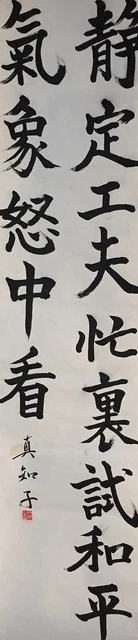 静定工夫忙裏試和平
氣象怒中看
真知子